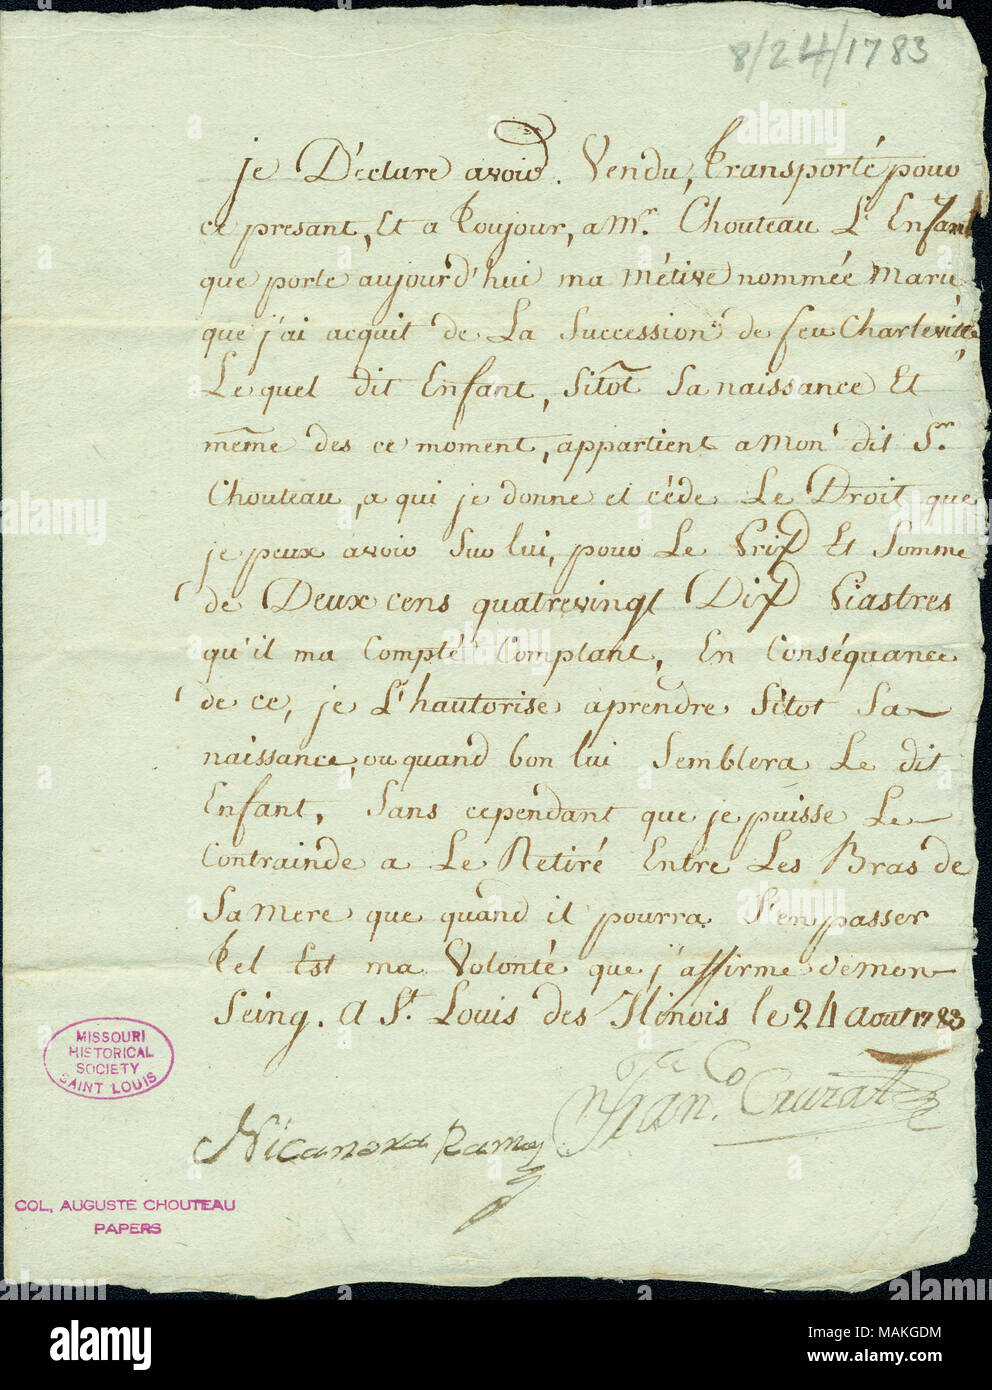 8/24/1783
je Déclare avoir. Vendu, Transporté pour
ce presant, Et a Toujour, a Mr. Chouteau L' Enfant
que porte aujourd'hui ma Métive nommée Marie,
que j'ai acquit de La Succession de feu Charleville,
Le quel dit Enfant, Sitôt Sa naissance Et
même des ce moment, appartient a Mon dit Sr.
Chouteau, a qui je donne et céde Le Droit que
je peux avoir Sur lui, pour Le Prix Et Somme
de Deux cens quatrevingt Dix Piastres
qu'il ma Compté Comptant, En Conséquance
de ce, je L'hautorise aprendre Sitot Sa
naissance, ou quand bon lui Semblera Le dit
Enfant, Sans cependant que je puisse Le
Contrainde a Le Retiré Entre Les Bras de
Sa Mere que quand il pourra S'en passer
Tel Est ma Volonté que j'affirme de mon
Seing. a St. Louis des Ilinois le 24 Aout 1783
Franco. Cruzat
Nicanora Ramos
MISSOURI
HISTORICAL
SOCIETY
SAINT LOUIS
COL. AUGUSTE CHOUTEAU
PAPERS
alamy
Image ID: MAKGDM
www.alamy.com